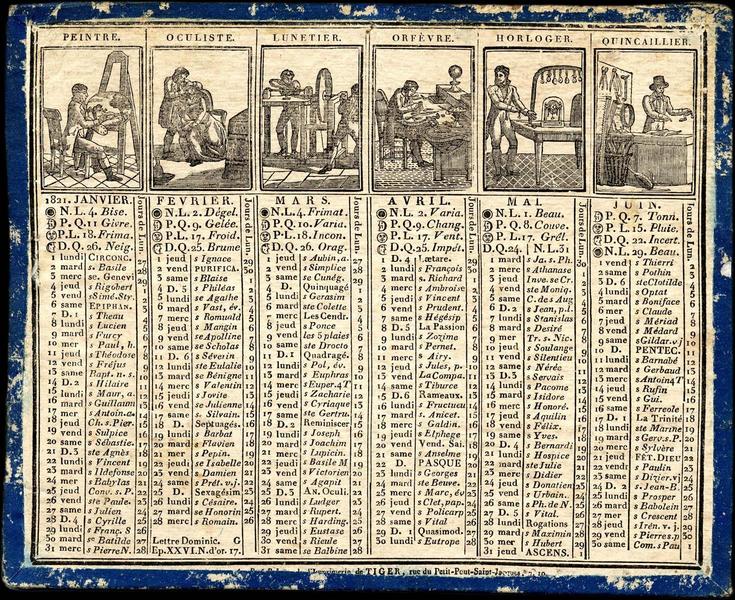 PEINTRE.
OCULISTE.
LUNETIER.
ORFÈVRE.
HORLOGER.
QUINCAILLIER.
1821. JANVIER.
Jours de Lun.
N.L. 4. Bise.
P.Q. 11 Givre.
P.L. 18. Frima.
D.Q. 26. Neig.
1 lundi CIRCONC.
2 mard s Basile
3 merc se. Genevi
4 jeud s Rigobert
5 vend s Simé.Sty.
6 same EPIPHAN.
7 D. 1 s Theau
8 lundi s Lucien
9 mard s Furcy
10 mer s Paul, h.
11 jeud s Théodose
12 ven s Fréjus
13 same Bapt. n. s.
14 D. 2 s Hilaire
15 lundi s Maur, a.
16 mard s Guillaum
17 mer s Antoin.a.
18 jeud Ch. s. Pier.
19 vend s Sulpice
20 same s Sébastie.
21 D. 3 ste Agnès
22 lundi s Vincent
23 mard s Ildefons
24 mer s Babylas
25 jeud Conv. s. P.
26 vend ste Paule.
27 same s Julien
28 D. 4 s Cyrille
29 lundi s Franç. S
30 mard se Batilde
31 merc s Pierre N.
FEVRIER.
Jours de Lun.
N.L. 2. Dégel.
P.Q. 9. Gelée.
P.L. 17. Froid.
D.Q. 25. Brume
1 jeud s Ignace
2 vend PURIFICA.
3 same s Blaise
4 D. 5 s Philéas
5 lundi se Agathe
6 mard s Vast, év.
7 merc s Romuald
8 jeud s Mangin
9 vend se Apolline
10 same se Scholas
11 D. 6 s Séverin
12 lundi ste Eulalie
13 mard se Bénigne
14 merc s Valentin
15 jeud s Jovite
16 vend se Julienne
17 same s. Silvain.
18 D. Septuagés.
19 lundi s Barbat
20 mard s Flavien
21 mer s Pepin.
22 jeud se Isabelle
23 vend s Damien
24 same s Prét. v.j.
25 D. Sexagésim
26 lundi s Césaire.
27 mard s Honorin
28 merc s Romain.
Lettre Dominic. G
Ep. XXVI. N. d'or. 17.
MARS.
Jours de Lun.
N.L. 4. Frimat.
P.Q. 10. Varia.
P.L. 18. Incon.
D.Q. 26. Orag.
1 jeud s Aubin, a.
2 vend s Simplice
3 same se Cunég.
4 D. Quinquagé
5 lundi s Gerasim
6 mard ste Colette
7 merc Les Cendr.
8 jeud s Ponce
9 vend les 5 plaies
10 same ste Drocto
11 D. 1 Quadragé.
12 lundi s Pol, év.
13 mard s Euphras
14 merc s Euper. 4 T
15 jeud s Zacharie
16 vend s Cyriaque
17 same ste Gertru.
18 D. 2 Reminiscer
19 lundi s Joseph
20 mard s Joachim
21 merc s Lupicin.
22 jeud s Basile M
23 vend s Victorien
24 same s Agapit
25 D. 3 AN. Oculi.
26 lundi s Ludger.
27 mard s Rupert.
28 merc s Harding.
29 jeudi s Eustase
30 vend s Rieule
31 same se Balbine
AVRIL.
Jours de Lun.
N.L. 2. Varia.
P.Q. 9. Chang.
P.L. 17. Vent.
D.Q. 25. Impét.
1 D. 4 Lætare.
2 lundi s François
3 mard s. Richard
4 merc s Ambroise
5 jeudi s Vincent
6 vend s Prudent.
7 same s Hégésip
8 D. 5 La Passion
9 lundi s Zozime
10 mard s Pernet.
11 merc s Airy.
12 jeud s Jules, p.
13 vend La Compa.
14 same s Tiburce
15 D. 6 Rameaux.
16 lundi s Fructueu
17 mard s. Anicet.
18 merc s Galdin.
19 jeud s Elphege
20 vend Vend. Sai.
21 same s Anselme
22 D. PASQUE
23 lundi s Georges
24 mard ste Beuve.
25 merc s Marc, év
26 jeud s Clet, pap.
27 vend s Policarp
28 same s Vital
29 D. 1 Quasimod.
30 lundi s Eutrope
MAI.
Jours de Lune.
N.L. 1. Beau.
P.Q. 8. Couve.
P.L. 17. Grêl.
D.Q. 24. N.L. 31
1 mard s Ja. s. Ph.
2 merc s Athanase
3 jeud Inve. se Cr.
4 vend ste Moniq.
5 same C. des Aug
6 D. 2 s Jean, p.l.
7 lundi s Stanislas
8 mard s Desiré
9 mer Tr. s. Nic.
10 jeud s Soulange
11 vend s Silentieu
12 same s Nérée
13 D. 3 s Servais
14 lundi s Pacome
15 mard s Isidore
16 merc s Honoré.
17 jeud s Aquilin
18 vend s Félix.
19 same s Yves.
20 D. 4 s Bernardi
21 lundi s Hospice
22 mard ste Julie
23 merc s Didier
24 jeud s Donatien
25 vend s Urbain.
26 same s Ph. de N.
27 D. 5 s Vital.
28 lundi Rogations
29 mard s Maximin
30 mer s Hubert
31 jeud ASCENS.
JUIN.
Jours de Lun.
P.Q. 7. Tonn.
P.L. 15. Pluie.
D.Q. 22. Incert.
N.L. 29. Beau.
1 vend s Thierri
2 same s Pothin
3 D. 6 ste Clotilde
4 lundi s Optat
5 mard s Boniface
6 mer s Claude
7 jeud s Mériad
8 vend s Médard
9 same s Gildar. v j
10 D. PENTEC.
11 lundi s Barnabé
12 mard s Gerbaud
13 merc s Antoin 4 T
14 jeud s Rufin
15 vend s Gui.
16 same s Ferreole
17 D. 1 La Trinité
18 lundi ste Marine
19 mard s Gerv. s. P.
20 merc s Sylvère
21 jeud FÊT. DIEU
22 vend s Paulin
23 same s Dizier. vj
24 D. 2 s Jean-B.
25 lundi s Prosper
26 mard s Babolein
27 mer s Crescent
28 jeud s Irén. v. j.
29 vend s Pierre s. p
30 same Com. s Pau
Imprimerie de TIGER, rue du Petit-Pont-Saint-Jacques, n. 10.